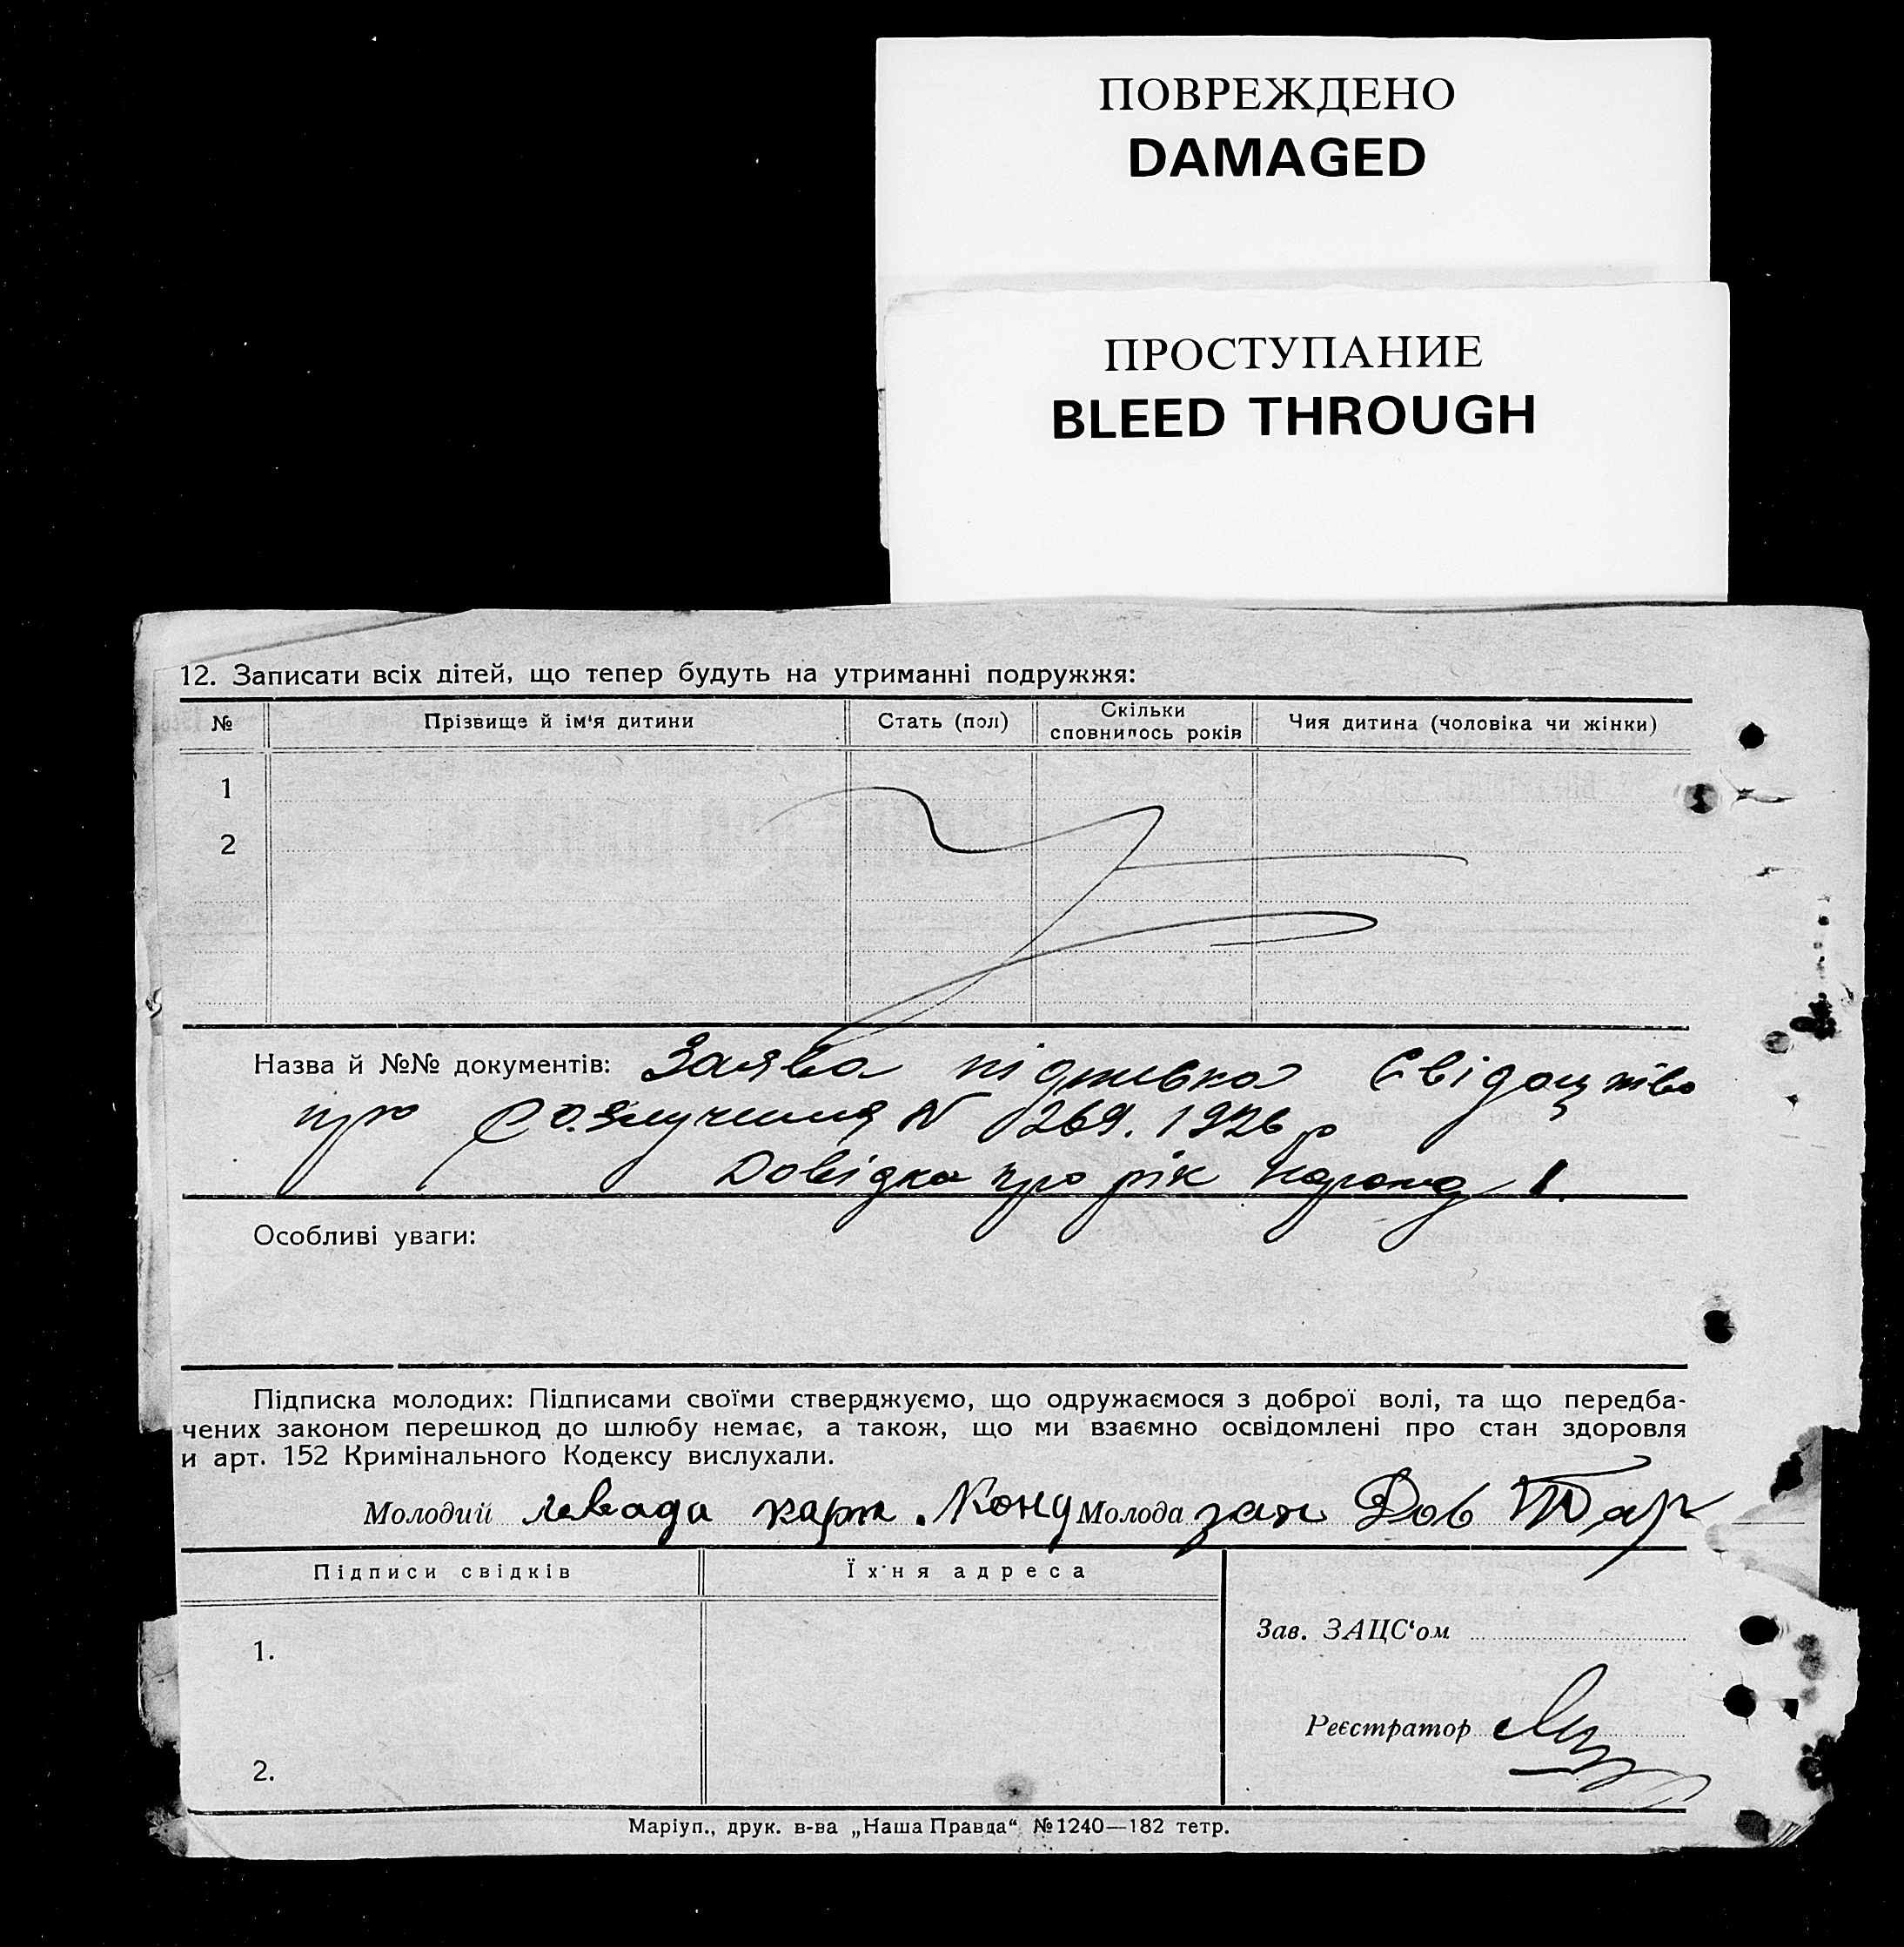 ПОВРЕЖДЕНО
DAMAGED
ПРОСТУПАНИЕ
BLEED THROUGH
12. Записати всіх дітей, що тепер будуть на утриманні подружжя:
№ Прізвище й ім'я дитини Стать (пол) Скільки сповнилось років Чия дитина (чоловіка чи жінки)
1
2
Назва й №№ документів: Заява підписка Свідоцтво
про розлучення N 269. 1926 р
Довідка про рік народ
Особливі уваги:
Підписка молодих: Підписами своїми стверджуємо, що одружаємося з доброї волі, та що передба-
чених законом перешкод до шлюбу немає, а також, що ми взаємно освідомлені про стан здоровля
и арт. 152 Кримінального Кодексу вислухали.
Молодий Левада Молода
Підписи свідків Їх'ня адреса
Зав. ЗАЦС'ом
1.
Реєстратор
2.
Маріуп., друк. в-ва „Наша Правда“ №1240—182 тетр.